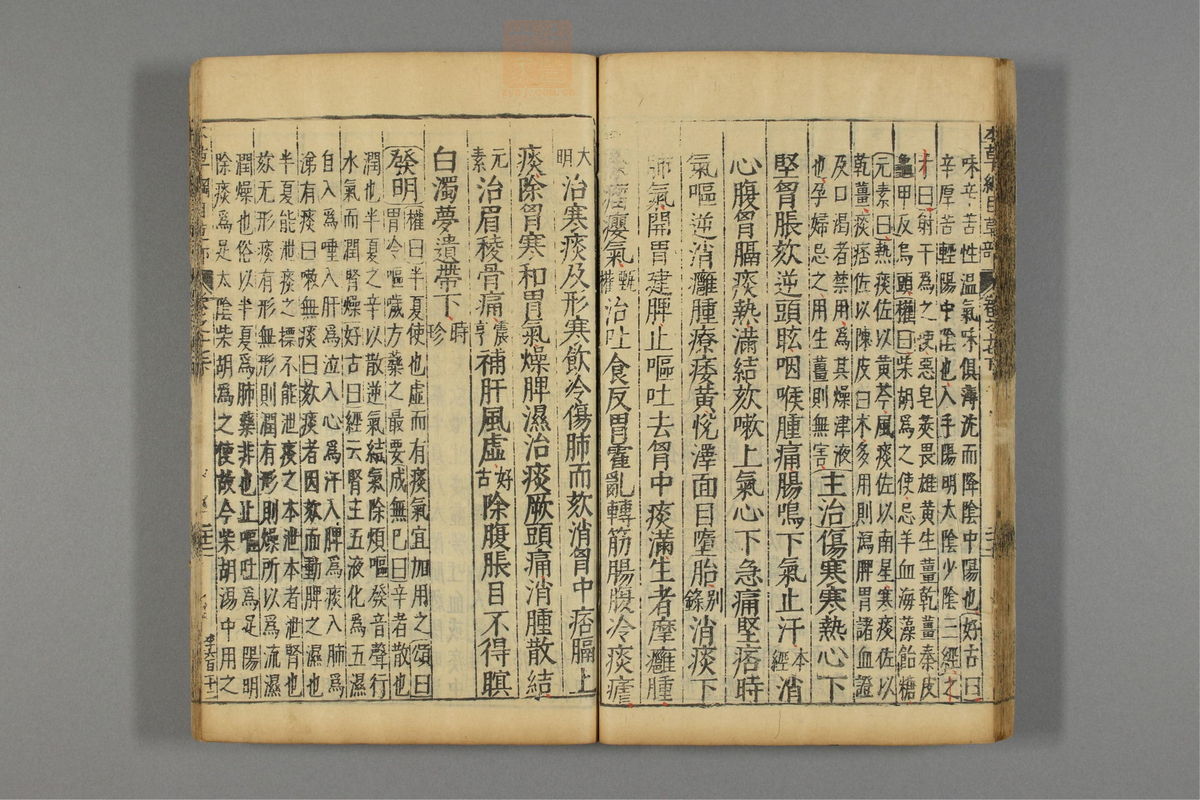 味辛苦性温氣味俱薄沈而降陰中陽也好古曰
辛厚苦輕陽中陰也入手陽明太陰少陰三經之
才曰射干爲之使惡皂莢畏雄黄生薑乾薑秦皮
龜甲反烏頭權曰柴胡爲之使忌羊血海藻飴糖
元素曰熱痰佐以黄芩風痰佐以南星寒痰佐以
乾薑痰痞佐以陳皮白朮多用則瀉脾胃諸血證
及口渴者禁用爲其燥津液
也孕婦忌之用生薑則無害
主治傷寒寒熱心下
堅胷脹欬逆頭眩咽喉腫痛腸鳴下氣止汗本經消
心腹胷膈痰熱滿結欬嗽上氣心下急痛堅痞時
氣嘔逆消癰腫療痿黄悅澤面目墮胎别錄消痰下
肺氣開胃建脾止嘔吐去胷中痰滿生者摩癰腫
瘤瘿氣甄權治吐食反胃霍亂轉筋腸腹冷痰瘧
大明治寒痰及形寒飲冷傷肺而欬消胷中痞膈上
痰除胷寒和胃氣燥脾濕治痰厥頭痛消腫散結
元素治眉稜骨痛震亨補肝風虛好古除腹脹目不得瞑
白濁夢遺帶下時珍
發明權曰半夏使也虛而有痰氣宜加用之頌曰
胃冷嘔噦方藥之最要成無已曰辛者散也
潤也半夏之辛以散逆氣結氣除煩嘔發音聲行
水氣而潤腎燥好古曰經云腎主五液化爲五濕
自入爲唾入肝爲泣入心爲汗入脾爲痰入肺爲
涕有痰曰嗽無痰曰欬痰者因欬而動脾之濕也
半夏能泄痰之標不能泄痰之本泄本者泄腎也
欬无形痰有形無形則潤有形則燥所以爲流濕
潤燥也俗以半夏爲肺藥非也止嘔吐爲足陽明
除痰爲足太陰柴胡爲之使故今柴胡湯中用之